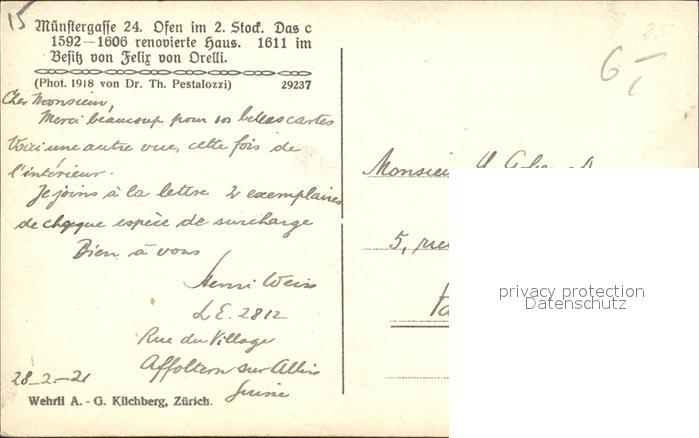 15
Münstergasse 24. Ofen im 2. Stock. Das c
1592–1606 renovierte Haus. 1611 im
Besitz von Felix von Orelli.
(Phot. 1918 von Dr. Th. Pestalozzi) 29237
Cher Monsieur,
Merci beaucoup pour vos belles cartes
Voici une autre vue, cette fois de
l'intérieur.
Je joins à la lettre 2 exemplaires
de chaque espèce de surcharge
Bien à vous
Henri Weis
L.E. 2812
Rue du Village
Affoltern sur Albis
Suisse
28-2-21
Wehrli A.-G. Kilchberg, Zürich.
25
6
Monsieur
5, rue
privacy protection
Datenschutz